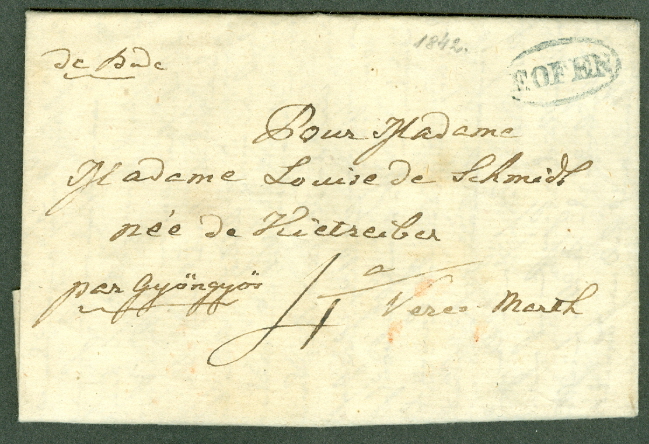 de Bude
1842.
F. OFEN
Pour Madame
Madame Louise de Schmidt
née de Hietreiber
par Gyöngyös
4
a
Veres Marth